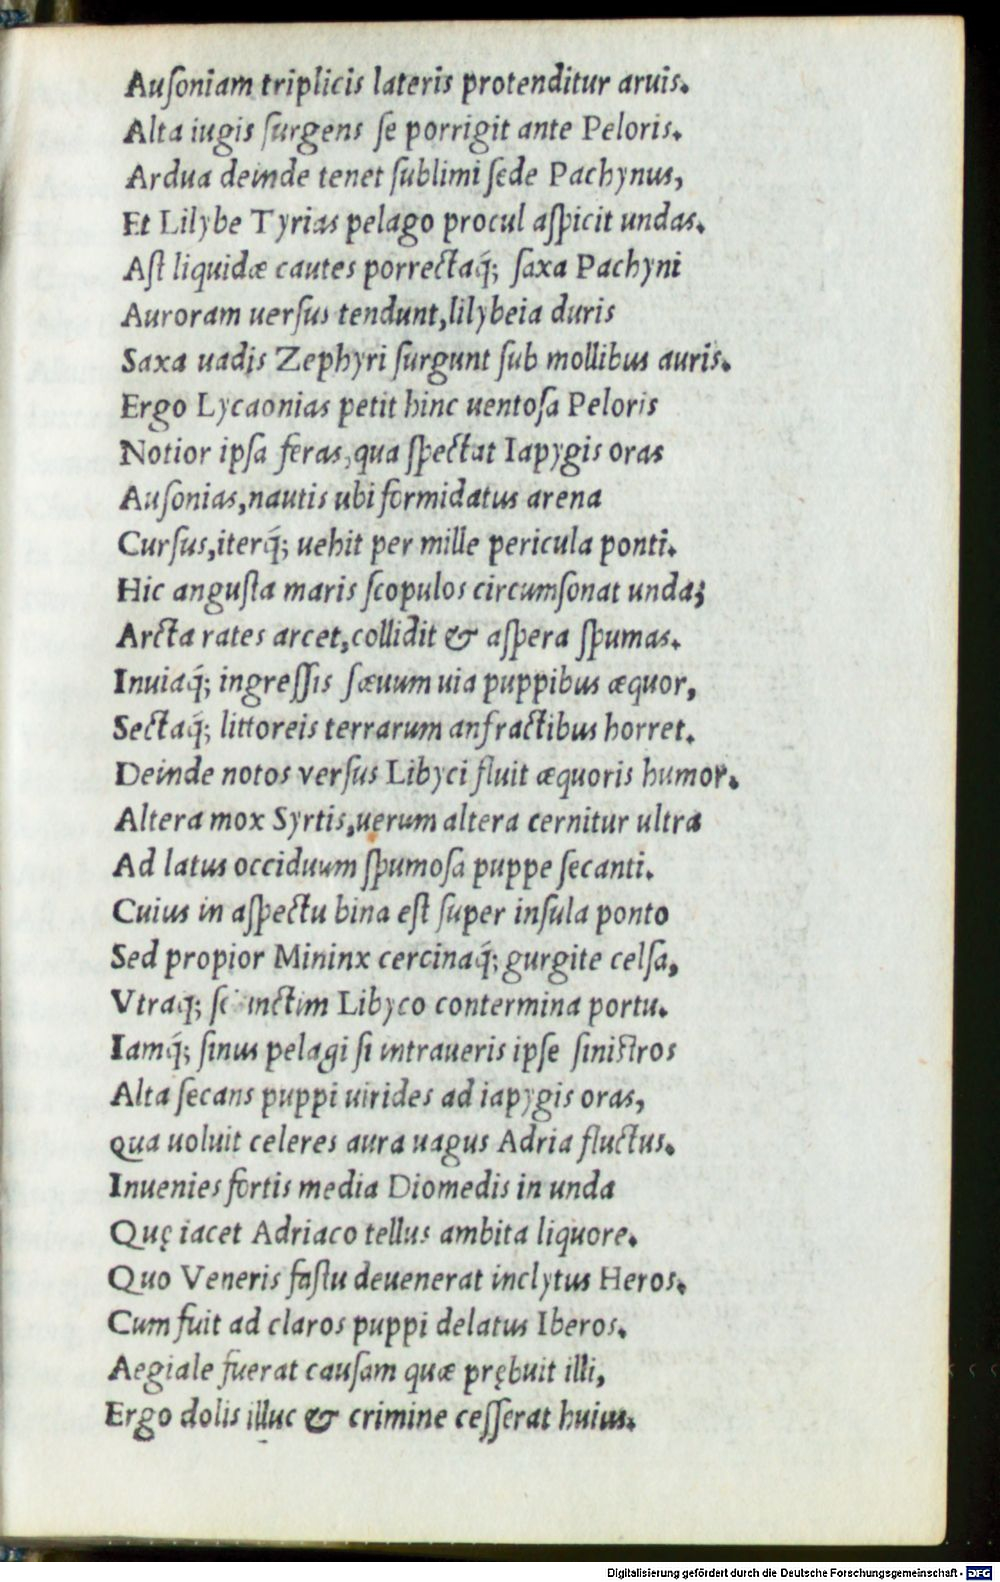 Auſoniam triplicis lateris protenditur aruis.
Alta iugis ſurgens ſe porrigit ante Peloris.
Ardua deinde tenet ſublimi ſede Pachynus,
Et Lilybe Tyrias pelago procul aſpicit undas.
Aſt liquidæ cautes porrectaq́; ſaxa Pachyni
Auroram uerſus tendunt,lilybeia duris
Saxa uadis Zephyri ſurgunt ſub mollibus auris.
Ergo Lycaonias petit hinc uentoſa Peloris
Notior ipſa feras,qua ſpectat Iapygis oras
Auſonias,nautis ubi formidatus arena
Curſus,iterq́; uehit per mille pericula ponti.
Hic anguſta maris ſcopulos circumſonat unda;
Arcta rates arcet,collidit & aſpera ſpumas.
Inuiaq́; ingreſſis ſæuum uia puppibus æquor,
Sectaq́; littoreis terrarum anfractibus horret.
Deinde notos verſus Libyci fluit æquoris humor.
Altera mox Syrtis,uerum altera cernitur ultra
Ad latus occiduum ſpumoſa puppe ſecanti.
Cuius in aſpectu bina eſt ſuper inſula ponto
Sed propior Mininx cercinaq́; gurgite celſa,
Vtraq; Libyco contermina portu.
Iamq́; ſinus pelagi ſi intraueris ipſe ſiniſtros
Alta ſecans puppi uirides ad iapygis oras,
Qua uoluit celeres aura uagus Adria fluctus.
Inuenies fortis media Diomedis in unda
Quę iacet Adriaco tellus ambita liquore.
Quo Veneris faſtu deuenerat inclytus Heros.
Cum fuit ad claros puppi delatus Iberos.
Aegiale fuerat cauſam quæ prębuit illi,
Ergo dolis illuc & crimine ceſſerat huius.
Digitalisierung gefördert durch die Deutsche Forschungsgemeinschaft - DFG